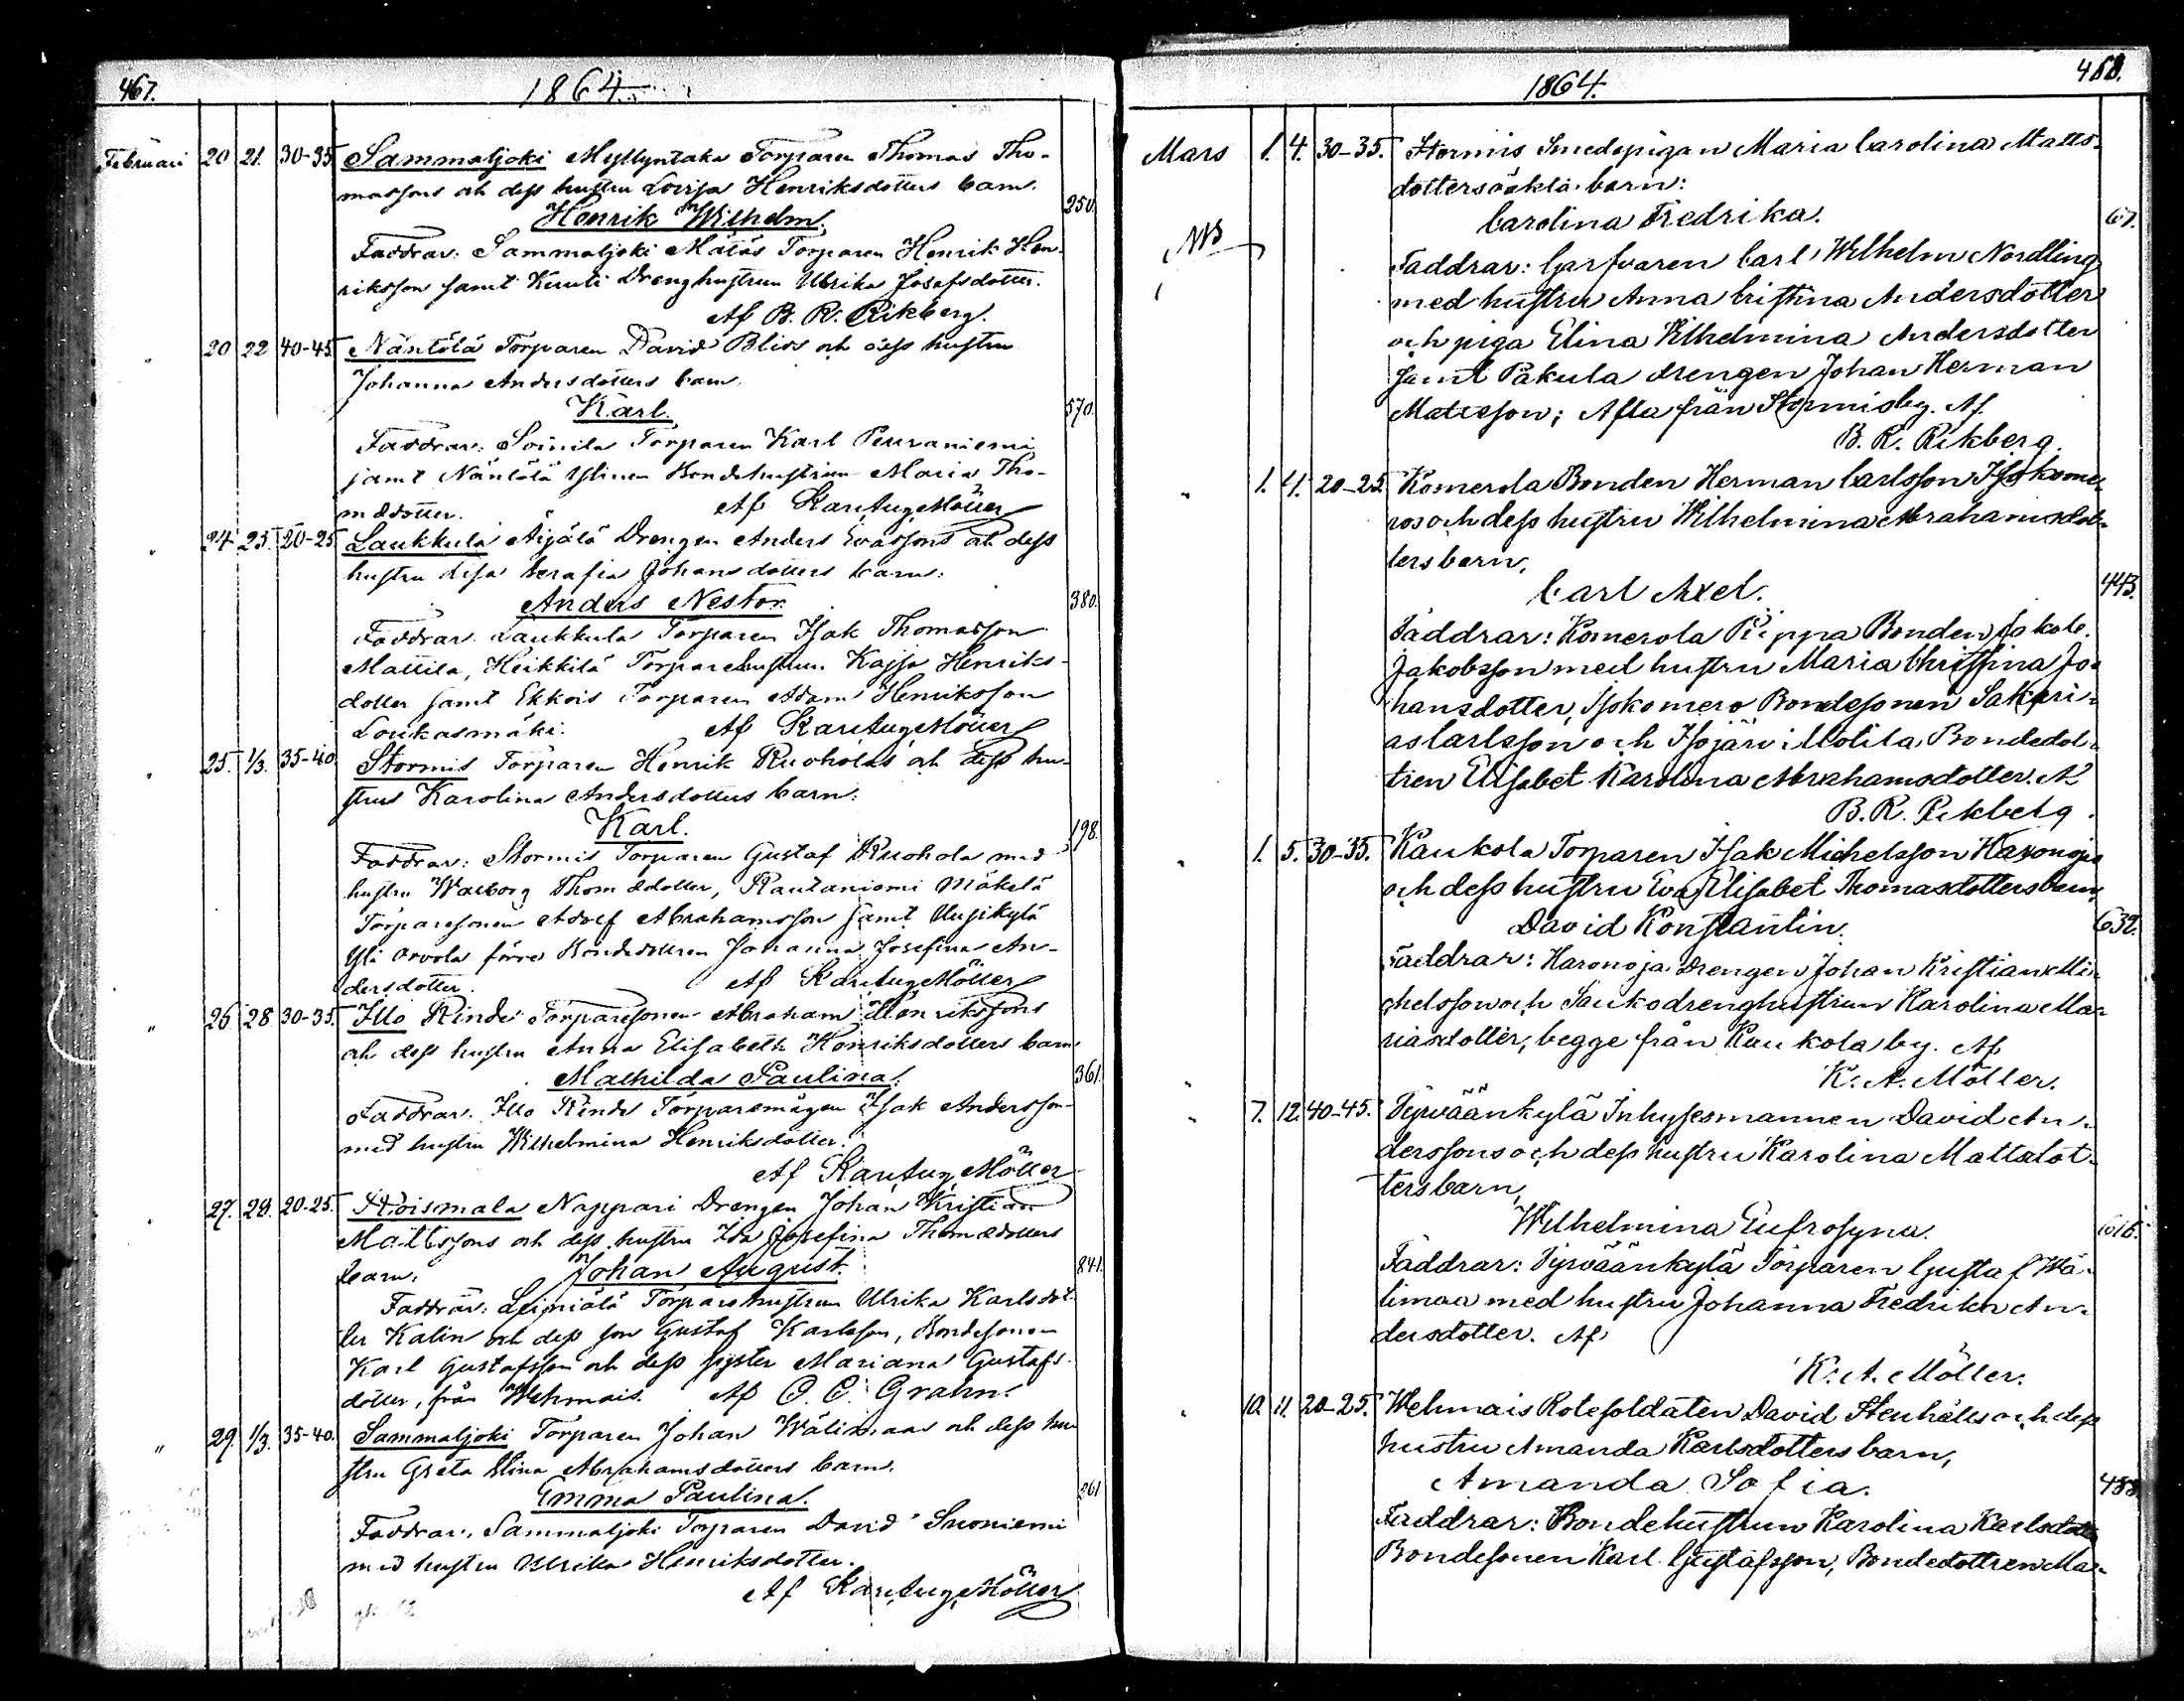 467.
1864.
Februari 20 21. 30-35 Sammaljoki Myllyntaka Torparen Thomas Tho-
massons och dess hustru Lovisa Henriksdotters barn.
Henrik Wilhelm. 250
Faddrar: Sammaljoki Mätäs Torparen Henrik Hen-
riksson samt Kuuti Drenghustrun Ulrika Josefsdotter.
Af B. R. Rikberg.
" 20 22 40-45 Näntölä Torparen David Blios och dess hustru
Johanna Andersdotters barn.
Karl. 570.
Faddrar: Soinila Torparen Karl Peuraniemi
samt Näntölä Ylinen Bondehustrun Maria Tho-
mædotter. Af Karl Aug. Möller
" 24 25. 20-25 Laukkula Äijälä Drengen Anders Evassons och dess
hustru Lisa Serafia Johansdotters barn:
Anders Nestor. 380.
Faddrar: Laukkula Torparen Isak Thomasson
Mattila, Heikkilä Torparehustrun Kajsa Henriks-
dotter samt Ekkois Torparen Adam Henriksson
Loukasmäki. Af Karl Aug Möller
" 25. 1/3. 35-40 Stormis Torparen Henrik Ruoholas och dess hu-
strus Karolina Andersdotters barn:
Karl. 198.
Faddrar: Stormis Torparen Gustaf Ruohola med
hustru Walborg Thomædotter, Rautaniemi Mäkelä
Torparesonen Adolf Abrahamsson samt Uusikylä
Yli Orvola förre Bondedottren Johanna Josefina An-
dersdotter. Af Karl Aug Möller
" 26 28 30-35. Illo Rindi Torparesonen Abraham Henrikssons
och dess hustru Anna Elisabeth Henriksdotters barn
Mathilda Paulina. 361.
Faddrar. Illo Rindi Torparemågen Isak Andersson
med hustru Wilhelmina Henriksdotter.
Af Karl Aug. Möller
" 27. 28. 20-25. Hoismala Nappari Drengen Johan Kristian
Mattssons och dess hustru Ida Josefina Thomædotters
barn: Johan August. 841.
Faddrar: Leiniälä Torparehustrun Ulrika Karlsdot-
ter Kalin och dess son Gustaf Karlsson, Bondesonen
Karl Gustafsson och dess syster Mariana Gustafs-
dotter, från Wehmais. Af O. E. Grahn.
" 29. 1/3. 35-40. Sammaljoki Torparen Johan Wälimaas och dess hu-
stru Greta Stina Abrahamsdotters barn.
Emma Paulina. 261
Faddrar. Sammaljoki Torparen David Suoniemi
med hustru Ulrika Henriksdotter.
Af Karl Aug. Möller
458.
1864.
Mars 1. 4. 30-35. Stormis Smedspigan Maria Carolina Matts-
dotters oäkta barn:
Carolina Fredrika. 67.
NB
Faddrar: Garfvaren Carl Wilhelm Nordling
med hustru Anna Cristina Andersdotter
och piga Elina Wilhelmina Andersdotter
samt Pakula drengen Johan Herman
Matsson; Alla från Stormisby. Af
B. R. Rikberg.
" 1. 4. 20-25. Komerola Bonden Herman Carlsson Isokome-
ros och dess hustru Wilhelmina Abrahamsdot-
ters barn,
Carl Axel. 443.
Faddrar: Komerola Pippa Bonden Jakob
Jakobsson med hustru Maria Christina Jo-
hansdotter, Isokomero Bondesonen Sakari-
as Carlsson och Isojärvi Motila Bondedot-
tren Elisabet Karolina Abrahamsdotter. Af
B. R. Rikberg.
" 1. 5. 30-35. Kaukola Torparen Isak Michelsson Haronoja
och dess hustru Eva Elisabet Thomasdotters barn,
David Konstantin. 632.
Faddrar: Haronoja Drengen Johan Kristian Mi-
chelsson och Sauko drenghustrun Karolina Ma-
riasdotter, begge från Kaukola by. Af
K. A. Möller.
" 7. 12. 40-45. Tyrväänkylä Inhysesmannen David An-
derssons och dess hustru Karolina Mattsdot-
ters barn,
Wilhelmina Eufrosyna. 1016.
Faddrar: Tyrväänkylä Torparen Gustaf Wä-
limaa med hustru Johanna Fredrika An-
dersdotter. Af
K. A. Möller.
" 10. 11. 20-25. Wehmais Rotesoldaten David Stenhälls och dess
hustru Amanda Karlsdotters barn,
Amanda Sofia. 488
Faddrar: Bondehustrun Karolina Karlsdotter
Bondesonen Karl Gustafsson, Bondedottren Ma-